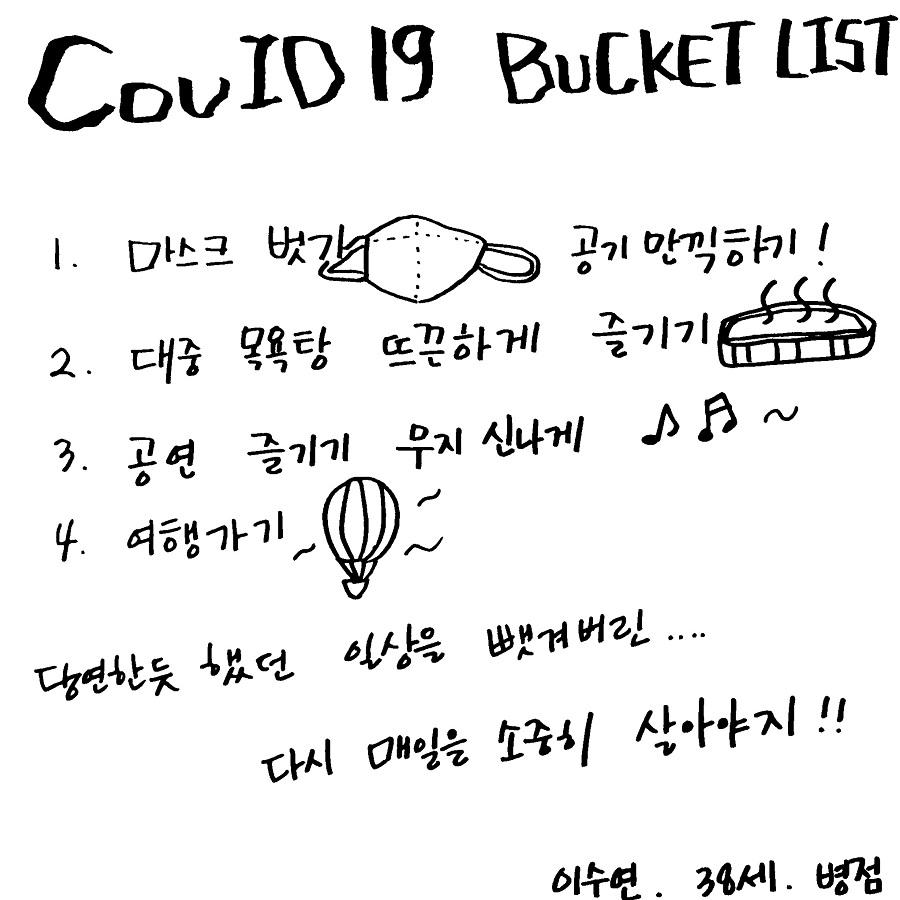 COVID 19 BUCKET LIST
1. 마스크 벗기 공기 만끽하기!
2. 대중 목욕탕 뜨끈하게 즐기기
3. 공연 즐기기 무지 신나게 ♪ ♬ ~
4. 여행가기 ~ ~ ~
당연한듯 했던 일상을 뺏겨버린....
다시 매일을 소중히 살아야지!!
이수연. 38세. 병점